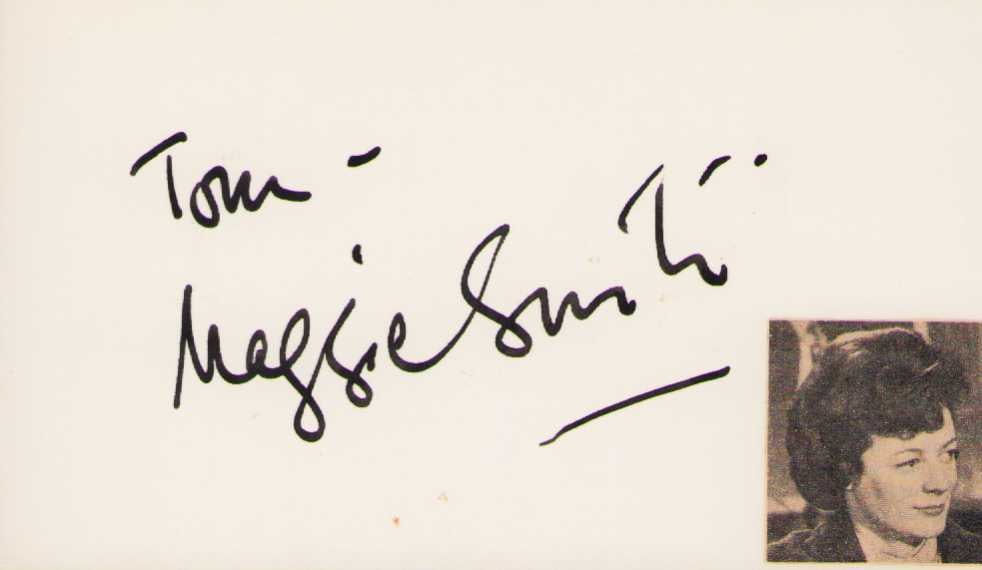 Tom -
Maggie Smith